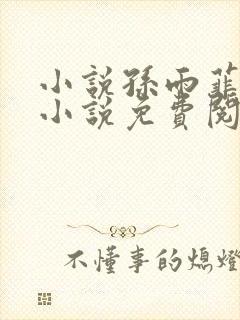 小説孫雨菲
小説免費閱
不懂事的熄燈